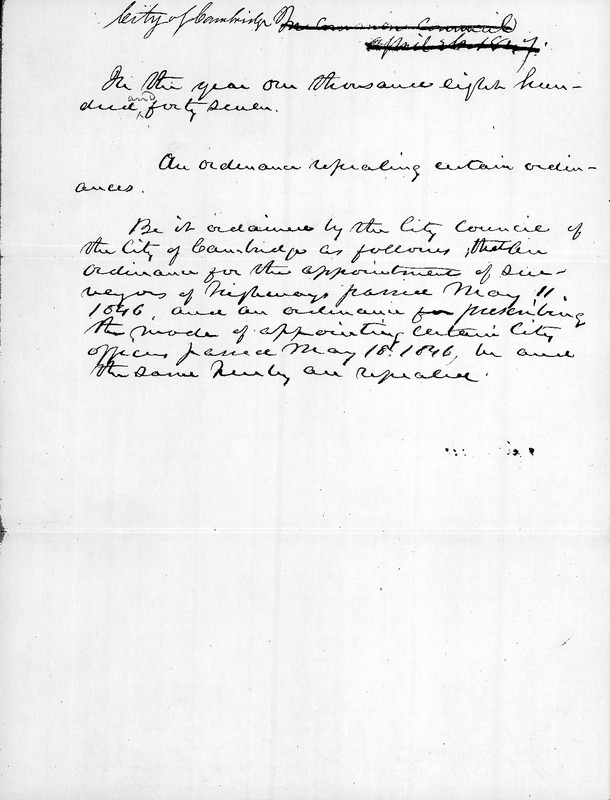 City of Cambridge In Common Council
April 26. 1847.
In the year one thousand eight hun-
dred and forty seven.
An ordinance repealing certain ordin-
ances.
Be it ordained by the City Council of
the City of Cambridge as follows, that an
ordinance for the appointment of sur-
veyors of highways passed May 11.
1846, and an ordinance for prescribing
the mode of appointing certain City
officers passed May 18. 1846, be and
the same hereby are repealed.